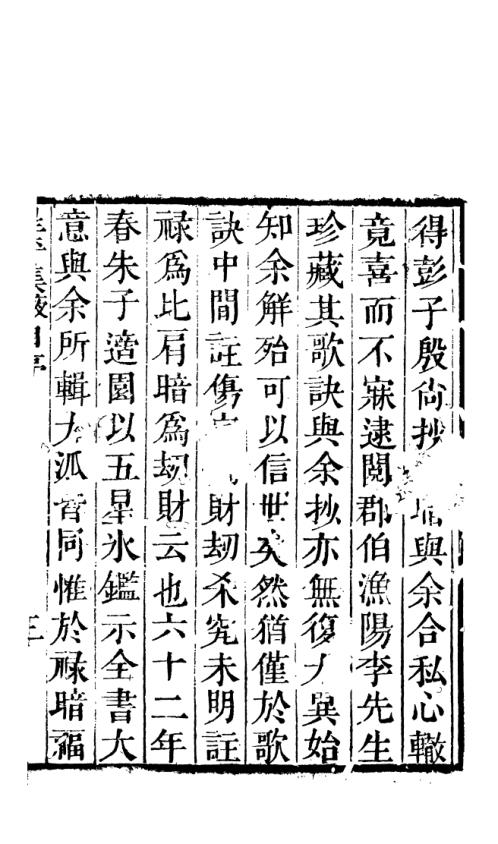 得彭子殷尚抄與余合私心轍
竟喜而不寐逮閱郡伯漁陽李先生
珍藏其歌訣與余抄亦無復大異始
知余解殆可以信世矣然猶僅於歌
訣中間註傷財刼殺究未明註
祿爲比肩暗爲刼財云也六十二年
春朱子適園以五星氷鑑示全書大
意與余所輯大派皆同惟於祿暗福
集
三